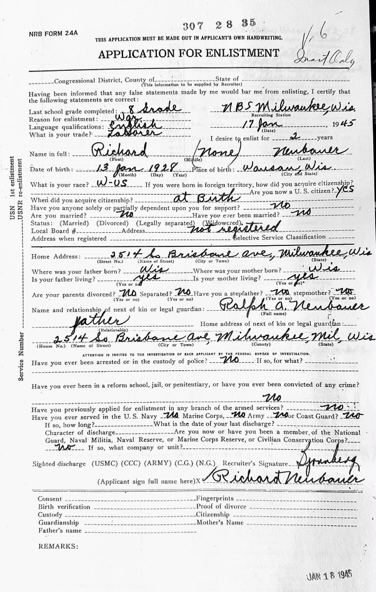 307 28 35
NRB FORM 24A
V-6
THIS APPLICATION MUST BE MADE OUT IN APPLICANT'S OWN HANDWRITING.
APPLICATION FOR ENLISTMENT
Congressional District, County of State of
(This information to be supplied by Recruiter)
Having been informed that any false statements made by me would bar me from enlisting, I certify that
the following statements are correct:
Last school grade completed: 8 Grade NRS Milwaukee, Wis
Reason for enlistment: War Recruiting Station
Language qualifications: English 17 Jan 1945
What is your trade? Laborer (Date)
I desire to enlist for 2 years
Name in full: Richard (none) Neubauer
(First) (Middle) (Last)
Date of birth: 13 Jan 1928 Place of birth: Wausau Wis
(Month) (Day) (Year) (City and State)
What is your race? W-US If you were born in foreign territory, how did you acquire citizenship?
When did you acquire citizenship? at Birth Are you now a U. S. citizen? yes
Have you anyone solely or partially dependent upon you for support? no
Are you married? no Have you ever been married? no
Status: (Married) (Divorced) (Legally separated) (Widowed)
Local Board # Address not registered
Address when registered Selective Service Classification
Home Address: 2514 So Brisbane ave, Milwaukee, Wis
(Street No.) (Name of Street) (City or Town) (State)
Where was your father born? Wis Where was your mother born? Wis
Is your father living? yes Is your mother living? yes
(Yes or no) (Yes or no)
Are your parents divorced? no Separated? no Have you a stepfather? no stepmother? no
(Yes or no) (Yes or no) (Yes or no) (Yes or no)
Name and relationship of next of kin or legal guardian: Ralph A. Neubauer
(Full name)
father Home address of next of kin or legal guardian
(Relationship)
2514 So Brisbane Ave Milwaukee, Mil, Wis
(House No.) (Name of Street) (City or Town) (County) (State)
ATTENTION IS INVITED TO THE INVESTIGATION OF EACH APPLICANT BY THE FEDERAL BUREAU OF INVESTIGATION.
Have you ever been arrested or in the custody of police? no If so, for what?
Have you ever been in a reform school, jail, or penitentiary, or have you ever been convicted of any crime?
no
Have you previously applied for enlistment in any branch of the armed services? no
Have you ever served in the U. S. Navy no Marine Corps, no Army no or Coast Guard? no
If so, how long? What is the date of your last discharge?
Character of discharge Are you now or have you been a member, of the National
Guard, Naval Militia, Naval Reserve, or Marine Corps Reserve, or Civilian Conservation Corps?
no If so, what company or unit?
Sighted discharge (USMC) (CCC) (ARMY) (C.G.) (N.G.) Recruiter's Signature
(Applicant sign full name here)X Richard Neubauer
Consent Fingerprints
Birth verification Proof of divorce
Custody Citizenship
Guardianship Mother's Name
Father's name
REMARKS:
JAN 18 1945
USN 1st enlistment
USNR re-enlistment
Service Number